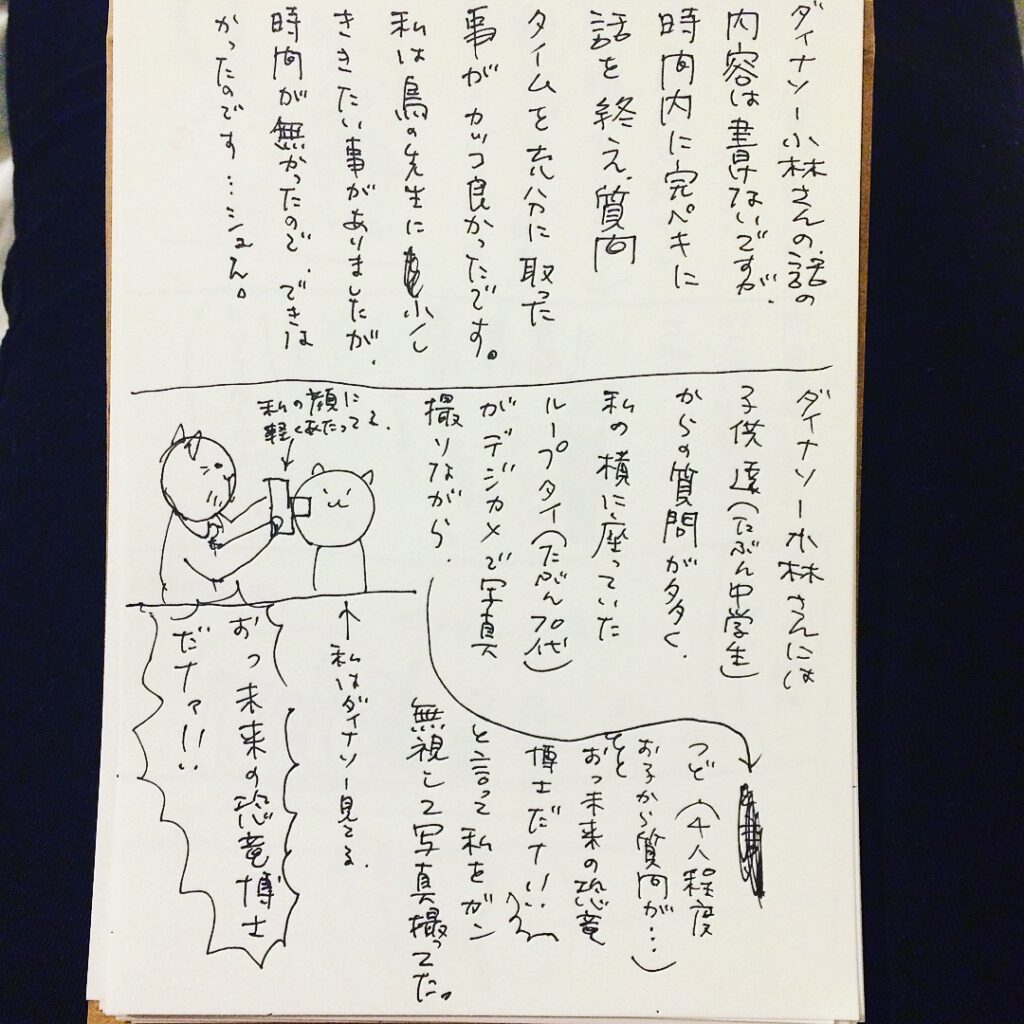 ダイナソー小林さんの話の
内容は書けないですが、
時間内に完ペキに
話を終え、質問
タイムを充分に取った
事がカッコ良かったです。
私は鳥の先生に少し
ききたい事がありましたが、
時間が無かったので、できな
かったのです…シュん。
ダイナソー小林さんには
子供達(たぶん中学生)
からの質問が多く、
私の横に座っていた
ループタイ(たぶん70代)
がデジカメで写真
撮りながら、
つど(4人程度
お子から質問が…)
おっ未来の恐竜
博士だナい
と言って私をガン
無視して写真撮ってた。
私の顔に
軽くあたってる。
↑私はダイナソー見てる。
おっ未来の恐竜博士
だナァ!!